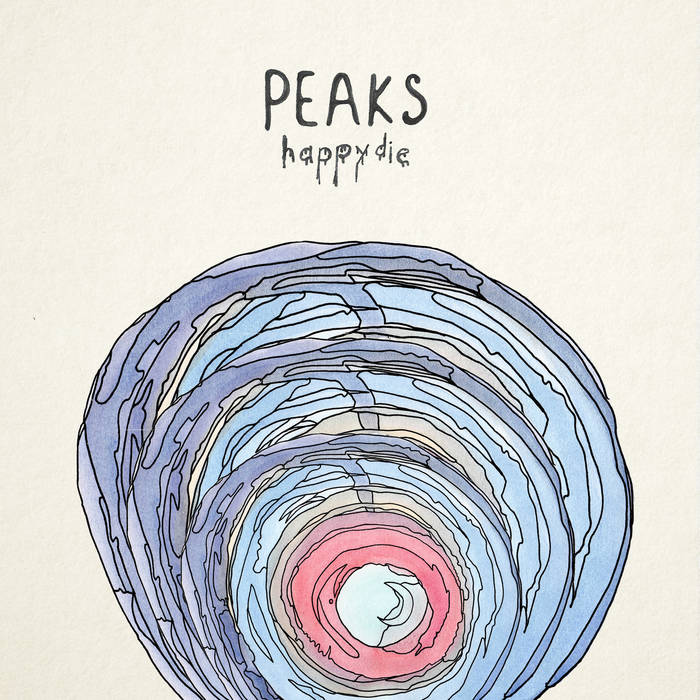 PEAKS
happy die